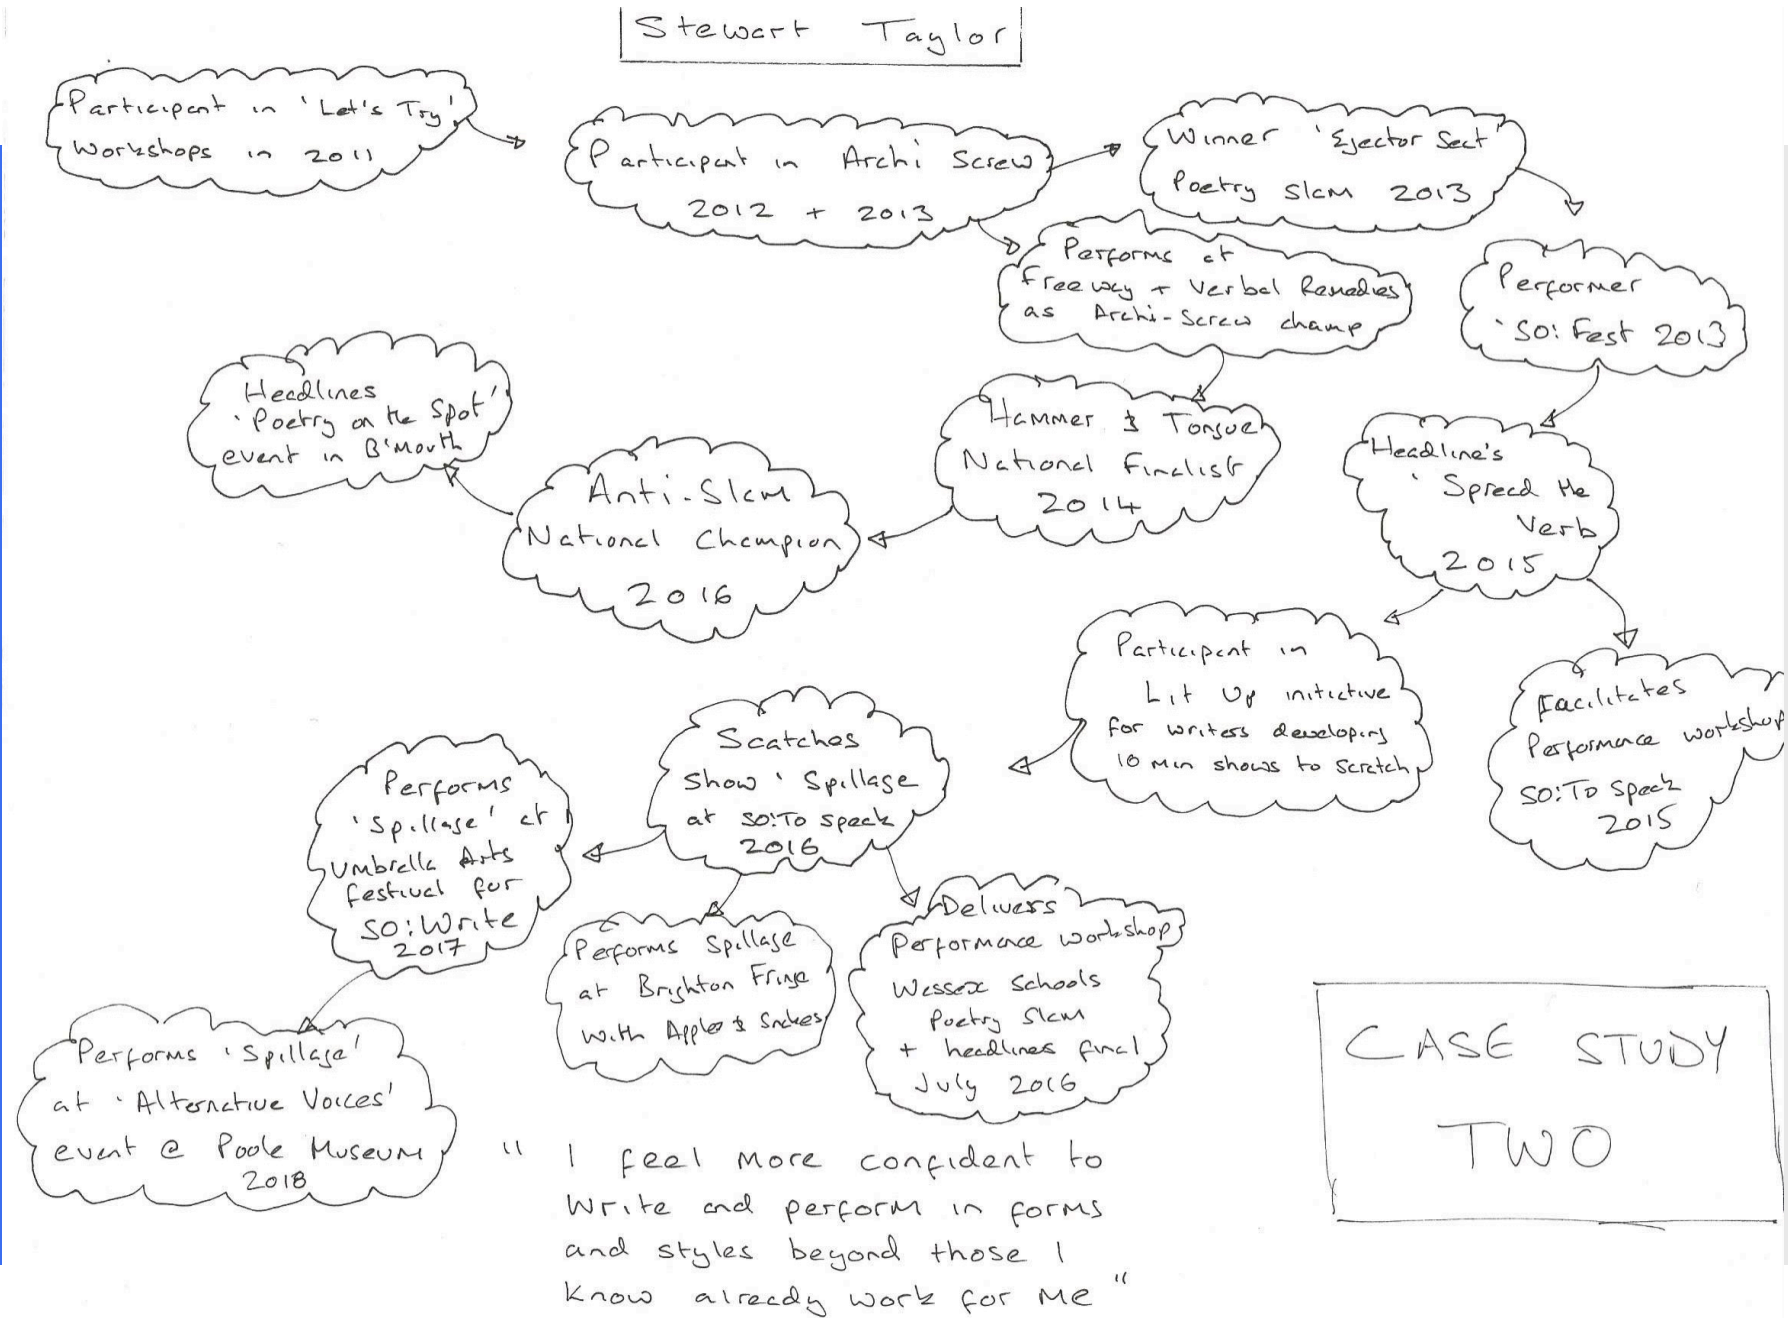 Stewart Taylor
Participant in 'Let's Try'
Workshops in 2011
Participant in Archi Screw
2012 + 2013
Winner 'Ejector Seat'
Poetry Slam 2013
Performs at
Freeway + Verbal Remedies
as Archi-Screw champ
Performer
'SO: Fest 2013
Headlines
'Poetry on the Spot'
event in B'Mouth
Anti-Slam
National Champion
2016
Hammer & Tongue
National Finalist
2014
Headline's
'Spread the
Verb
2015
Participant in
Lit Up initiative
for writers developing
10 min shows to scratch
Facilitates
Performance workshop
SO:To Speak
2015
Scatches
Show 'Spillage
at SO:To Speak
2016
Performs
'Spillage' at
Umbrella Arts
festival for
SO:Write
2017
Performs Spillage
at Brighton Fringe
with Apples & Snakes
Delivers
Performance workshop
Wessex Schools
Poetry Slam
+ headlines final
July 2016
Performs 'Spillage'
at 'Alternative Voices'
event @ Poole Museum
2018
" I feel more confident to
write and perform in forms
and styles beyond those I
know already work for me "
CASE STUDY
TWO